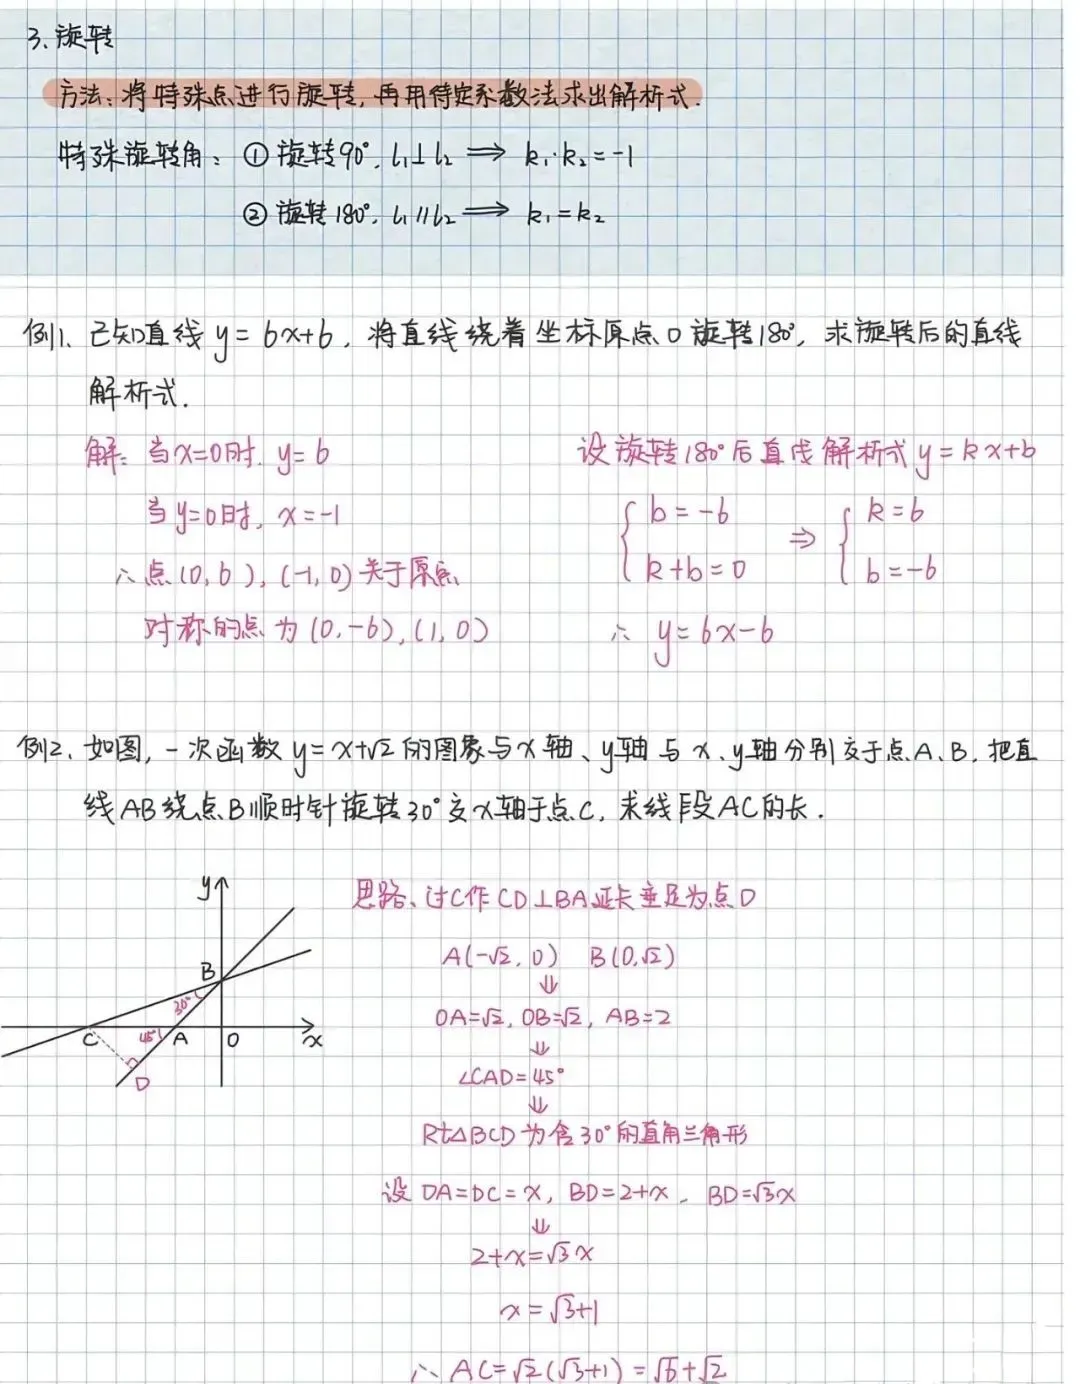 3、旋转
方法：将特殊点进行旋转，再用待定系数法求出解析式.
特殊旋转角： ① 旋转90°, l₁⊥l₂ ⟹ k₁·k₂=-1
② 旋转180°, l₁//l₂ ⟹ k₁=k₂
例1、已知直线 y=6x+6，将直线绕着坐标原点O旋转180°，求旋转后的直线
解析式.
解：当x=0时，y=6
当y=0时，x=-1
∴点(0,6),(-1,0)关于原点
对称的点为(0,-6),(1,0)
设旋转180°后直线解析式y=kx+b
{ b=-6
k+b=0
⇒ { k=6
b=-6
∴ y=6x-6
例2、如图，一次函数y=x+√2的图象与x轴、y轴与x、y轴分别交于点A、B，把直
线AB绕点B顺时针旋转30°交x轴于点C，求线段AC的长.
y
B
30°
C
45°
A
O
x
D
思路、过C作CD⊥BA延长垂足为点D
A(-√2,0) B(0,√2)
⇓
OA=√2, OB=√2, AB=2
⇓
∠CAD=45°
⇓
Rt△BCD为含30°的直角三角形
设DA=DC=x, BD=2+x, BD=√3x
⇓
2+x=√3x
x=√3+1
∴ AC=√2(√3+1)=√6+√2